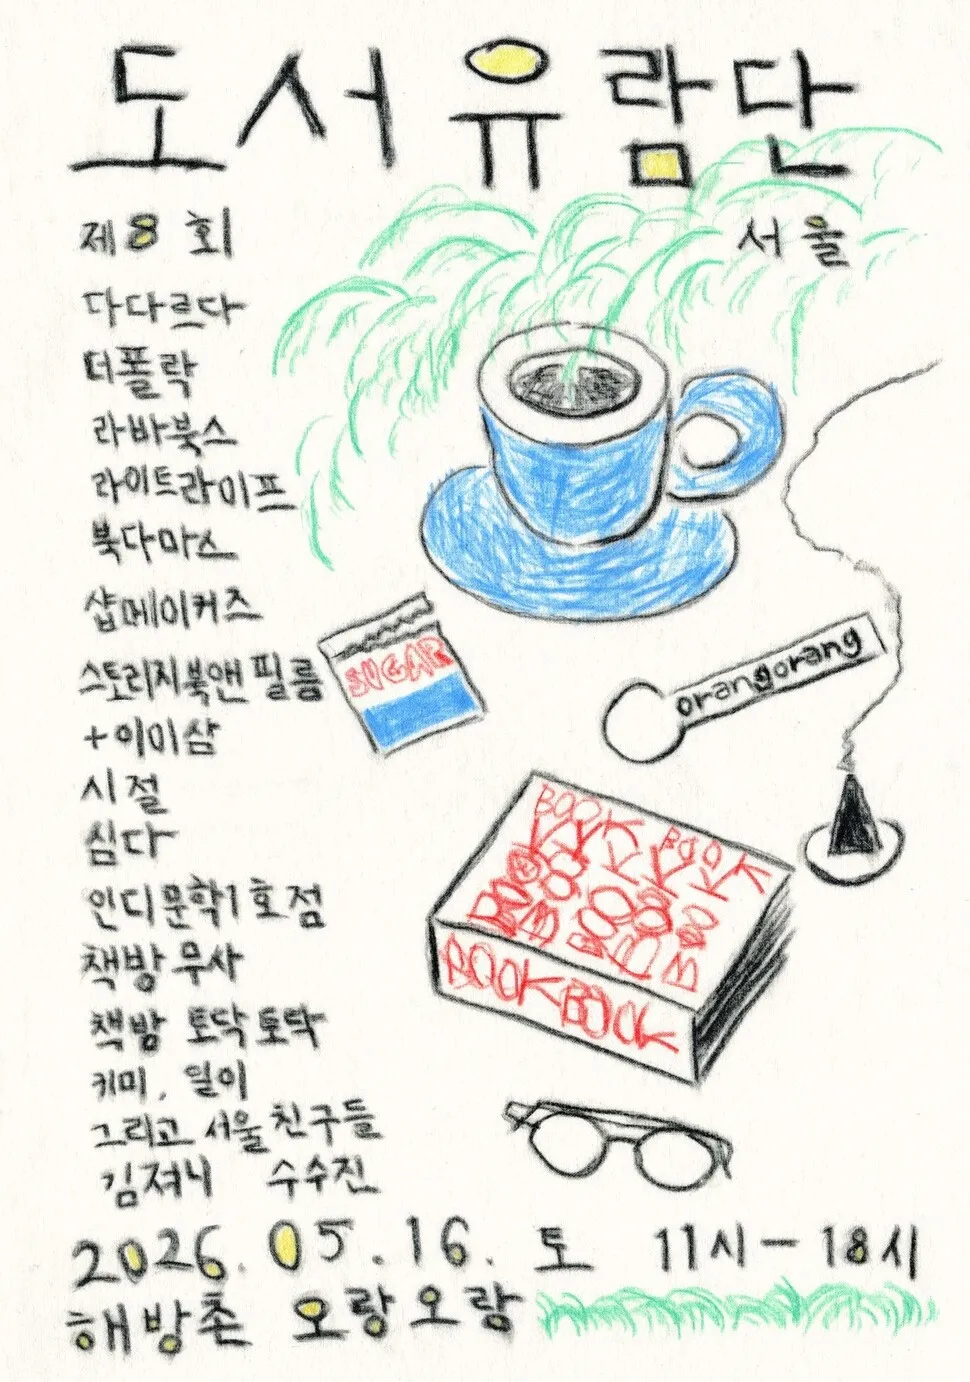 도서유람단
제8회
서울
다다르다
더폴락
라바북스
라이트라이프
북다마스
샵메이커즈
스토리지북앤필름
+이미삼
시절
심다
인디문학1호점
책방무사
책방 토닥토닥
키미, 일이
그리고 서울친구들
김져니 수수진
SUGAR
orangorang
BOOK BOOK
BOOKBOOK
2026. 05. 16. 토 11시-18시
해방촌 오랑오랑